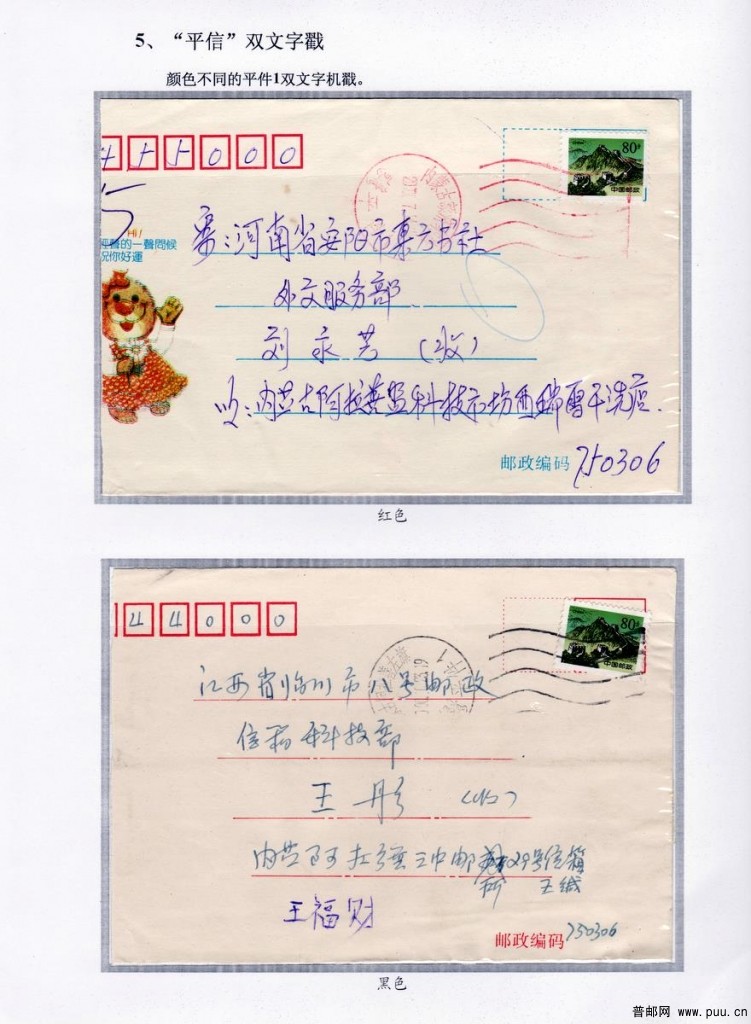 5、“平信”双文字戳
颜色不同的平件1双文字机戳。
455000
80分
中国邮政
Hi!
的一聲問候
祝你好運
寄:河南省安阳市集六书社
外文服务部
刘永芳(收)
内蒙古阿拉善盟科技市场西瑞雪干洗店.
邮政编码 750306
红色
44000
80分
中国邮政
江西省临川市八号邮政
信箱科技部
王彤(收)
内蒙阿左旗 邮 29号信箱
所 王缄
王福财
邮政编码 750306
黑色
普邮网 www.puu.cn